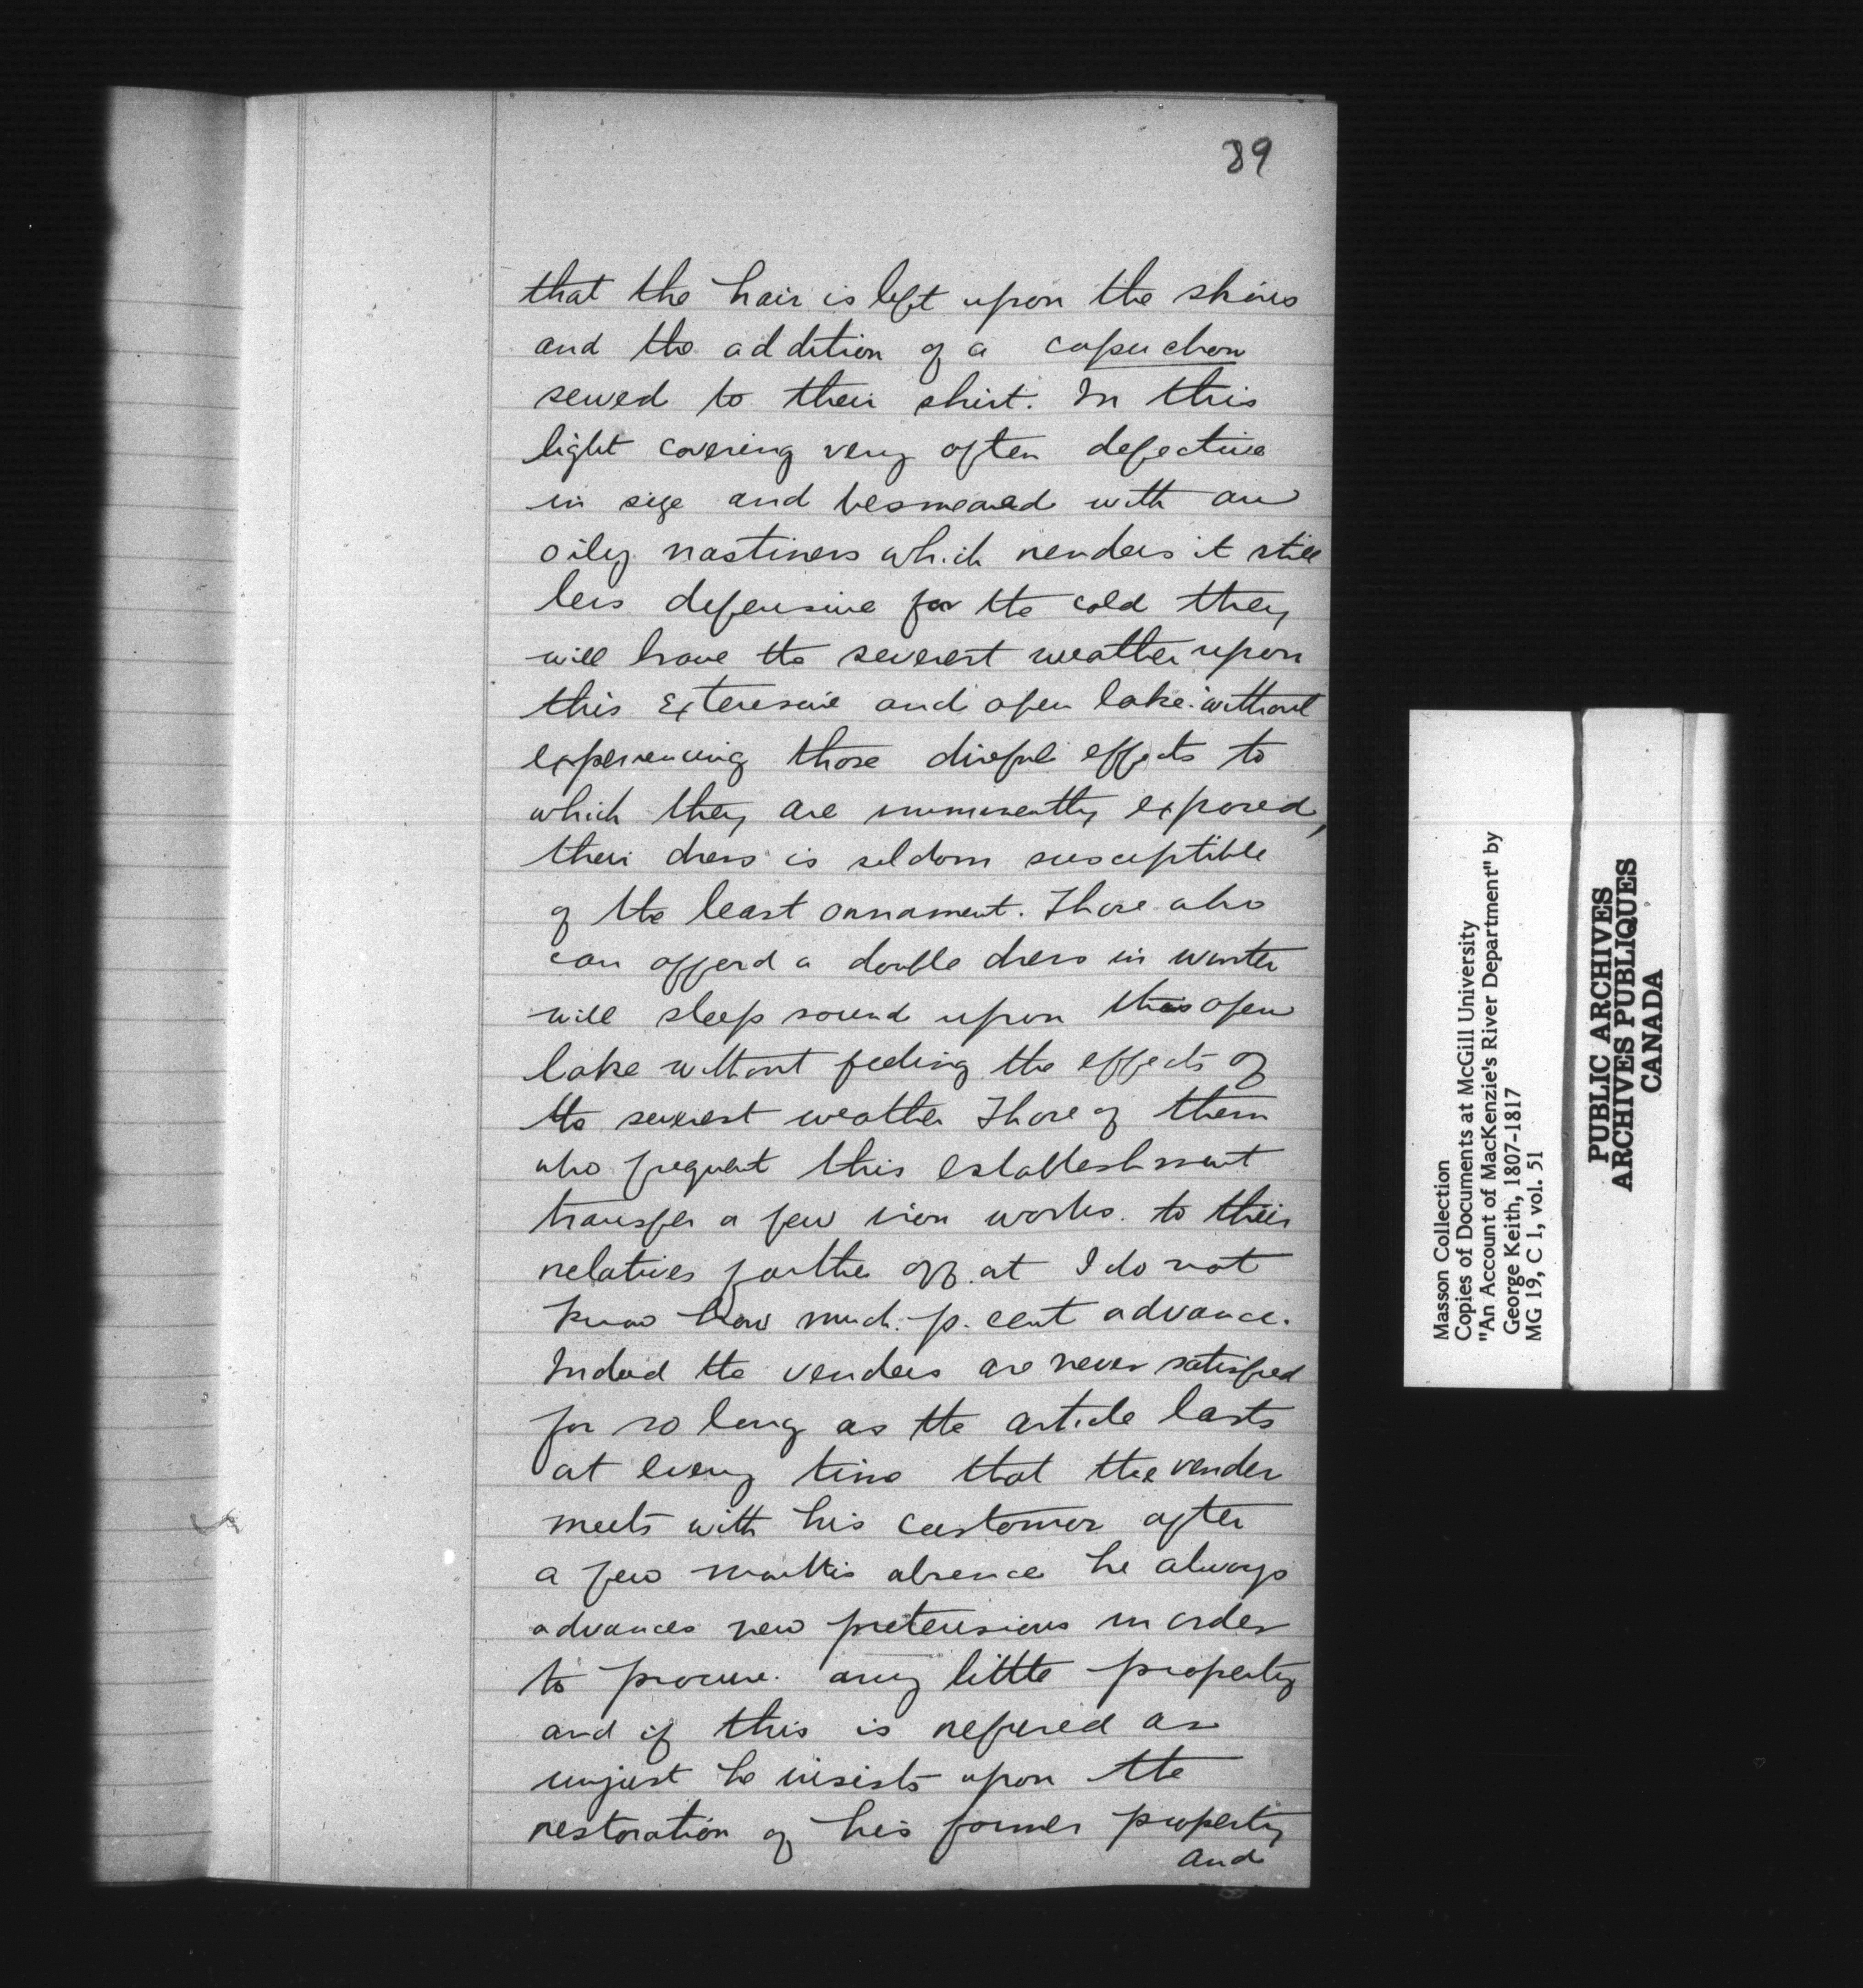 39
that the hair is left upon the skins
and the addition of a capuchon
sewed to their shirt. In this
light covering very often defective
in size and besmeared with an
oily nastiness which renders it still
less defensive for the cold they
will brave the severest weather upon
this extensive and open lake without
experiencing those direful effects to
which they are imminently exposed,
their dress is seldom susceptible
of the least ornament. Those who
can afferd a double dress in winter
will sleep sound upon this open
lake without feeling the effects of
the severest weather Those of them
who frequent this establishment
transfer a few iron works. to their
relatives farther off. at I do not
know how much. p. cent advance.
Indeed the venders are never satisfied
for so long as the article lasts
at every time that the vender
meets with his customer after
a few months absence he always
advances new pretensions in order
to procure any little property
and if this is refused as
unjust he insists upon the
restoration of his former property
and
Masson Collection
Copies of Documents at McGill University
"An Account of MacKenzie's River Department" by
George Keith, 1807-1817
MG 19, C 1, vol. 51
PUBLIC ARCHIVES
ARCHIVES PUBLIQUES
CANADA